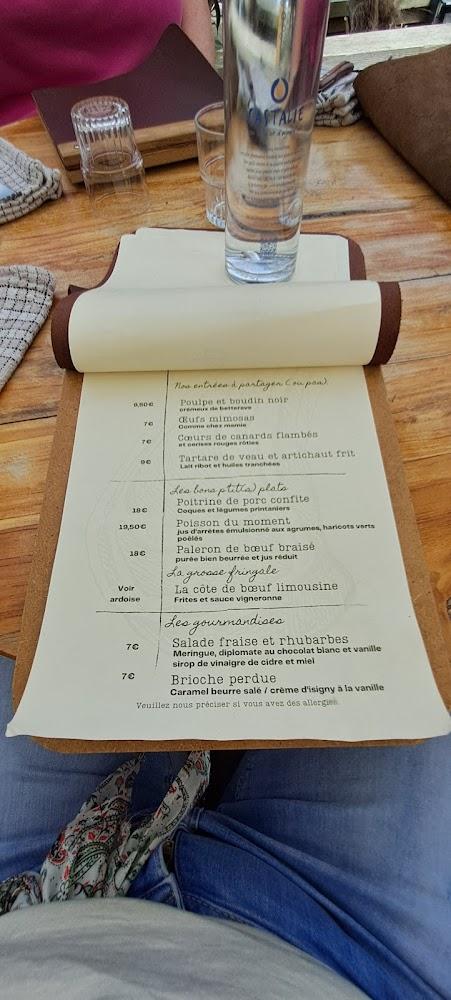 CASTALIE
Nos entrées à partager (ou pas)
9,50€ Poulpe et boudin noir
crémeux de betterave
7€ Œufs mimosas
Comme chez mamie
7€ Cœurs de canards flambés
et cerises rouges rôties
9€ Tartare de veau et artichaut frit
Lait ribot et huiles tranchées
Les bons p'tit(s) plats
Poitrine de porc confite
18€ Coques et légumes printaniers
19,50€ Poisson du moment
jus d'arrêtes émulsionné aux agrumes, haricots verts
poêlés
18€ Paleron de bœuf braisé
purée bien beurrée et jus réduit
La grosse fringale
Voir ardoise La côte de bœuf limousine
Frites et sauce vigneronne
Les gourmandises
7€ Salade fraise et rhubarbes
Meringue, diplomate au chocolat blanc et vanille
sirop de vinaigre de cidre et miel
7€ Brioche perdue
Caramel beurre salé / crème d'isigny à la vanille
Veuillez nous préciser si vous avez des allergies.